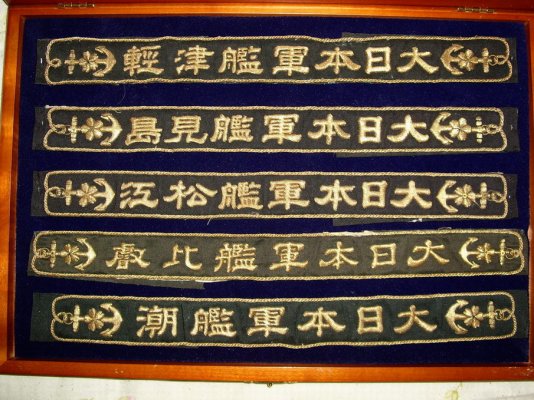 大日本軍艦津輕
大日本軍艦見島
大日本軍艦松江
大日本軍艦比叡
大日本軍艦潮